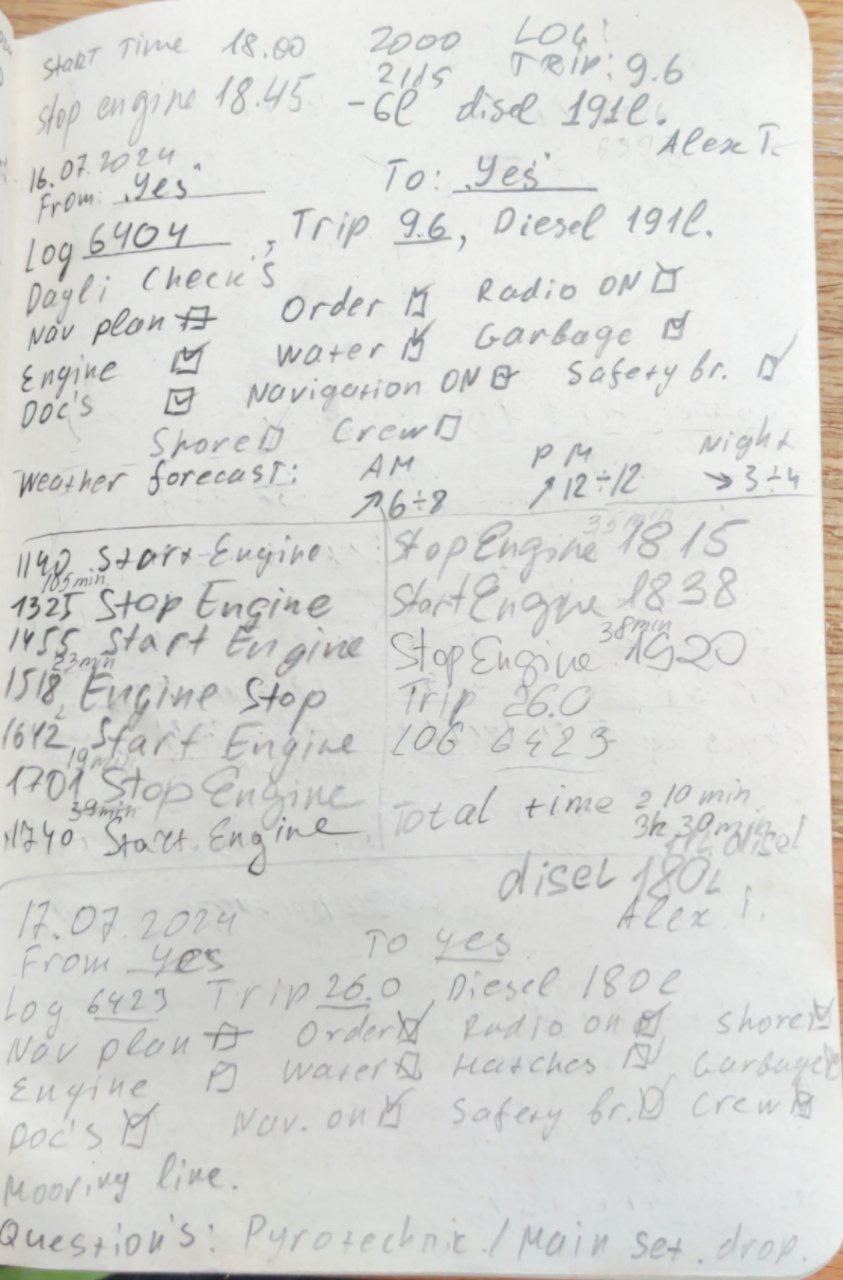 Start Time 18.00 2000 LOG:
2115 Trip: 9.6
Stop engine 18.45 -6l disel 191l.
Alex T.
16.07.2024
From: "Yes" To: "Yes"
Log 6404, Trip 9.6, Diesel 191l.
Dayli Check's
Nav plan Order Radio ON
Engine Water Garbage
Doc's Navigation ON Safety br.
Shore Crew
Weather forecast: AM PM Night
↗6÷8 ↗12÷12 →3÷4
1140 Start Engine
105min
1325 Stop Engine
1455 Start Engine
23min
1518 Engine Stop
1642 Start Engine
19min
1701 Stop Engine
39min
1740 Start Engine
35min
Stop Engine 1815
Start Engine 1838
38min
Stop Engine 1920
Trip 26.0
LOG 6423
Total time 210 min
3h 30min
disel
disel 180L
Alex T.
17.07.2024
From Yes To yes
Log 6423 Trip 26.0 Diesel 180l
Nav plan Order Radio on Shore
Engine Water Hatches Garbage
Doc's Nav. on Safety br. Crew
Mooring line.
Question's: Pyrotechnic / Main set. drop.